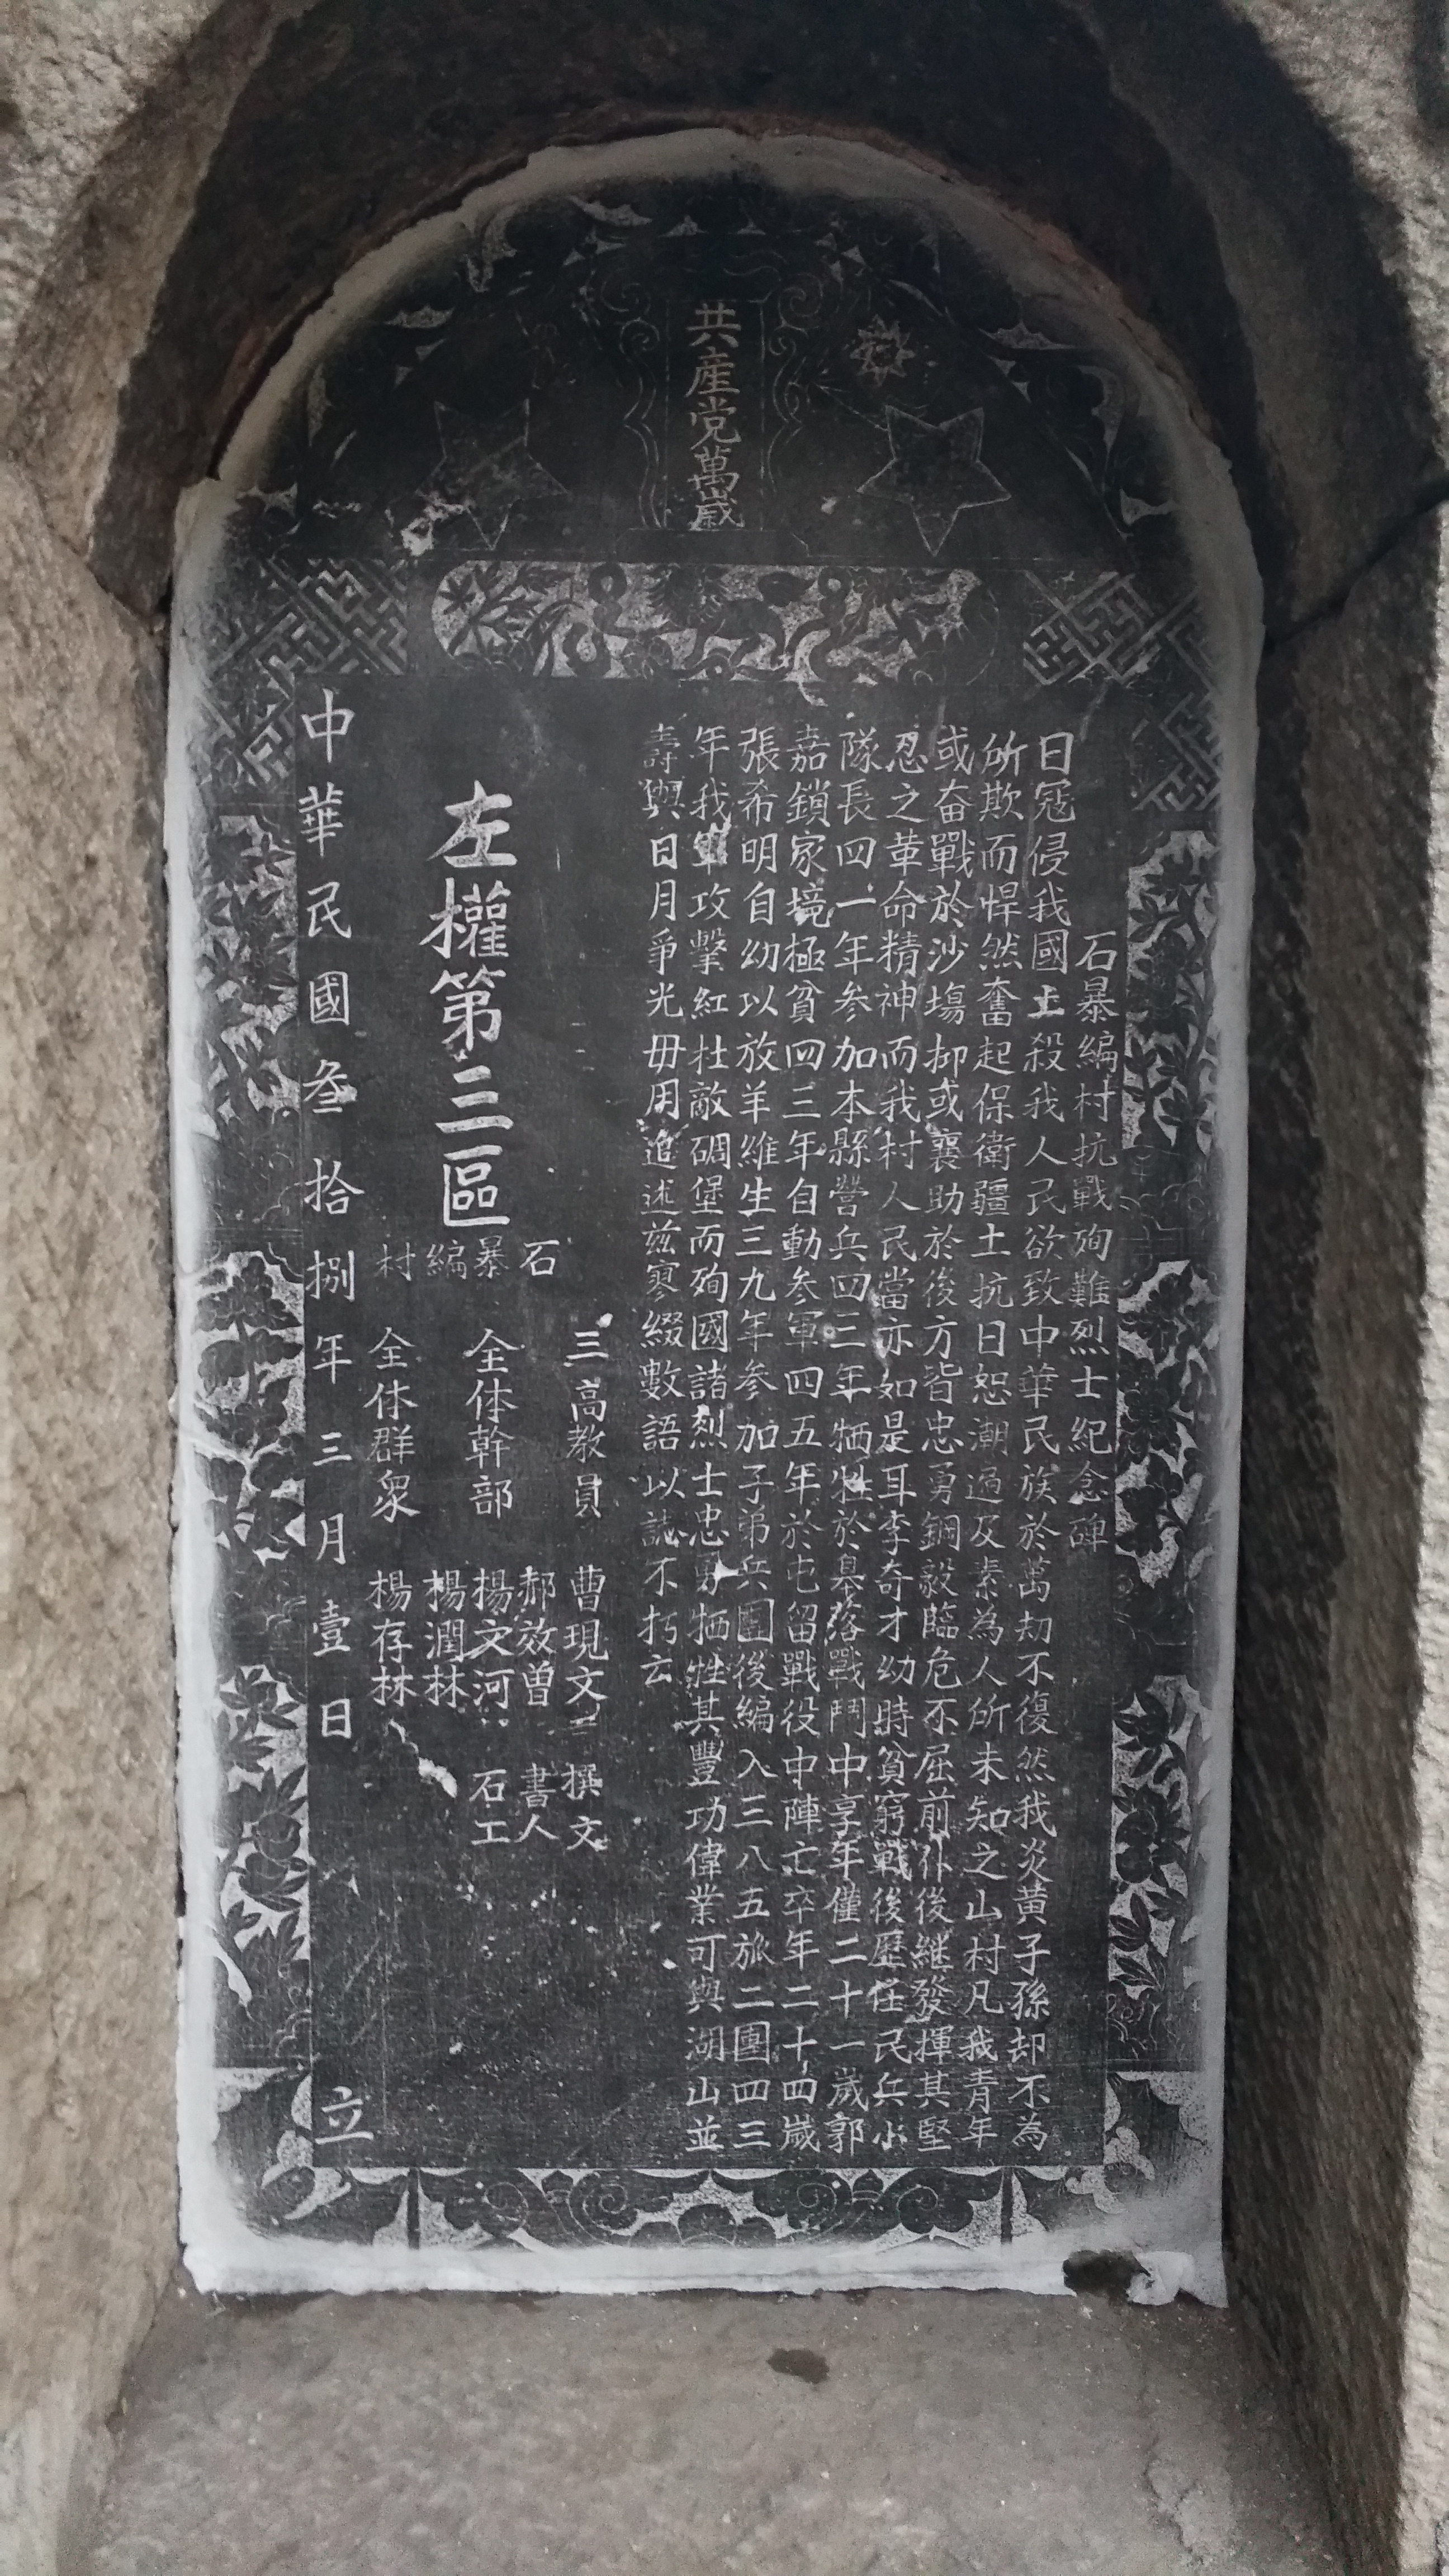 共産党萬歲
石暴編村抗戰殉難烈士紀念碑
日冦侵我國土殺我人民欲致中華民族於萬刼不復然我炎黃子孫却不為
所欺而悍然奮起保衛疆土抗日恕潮遍及素為人所未知之山村凡我青年
或奋戰於沙塲抑或襄助於後方皆忠勇鋼毅臨危不屈前仆後継發揮其堅
忍之革命精神而我村人民當亦如是耳李奇才幼時貧窮戰後歷任民兵小
隊長四一年参加本縣營兵四三年牺牲於臯落戰鬥中享年僅二十一歲郭
嘉鎖家境極貧四三年自動参軍四五年於屯留戰役中陣亡卒年二十四歲
張希明自幼以放羊維生三九年参加子弟兵團後編入三八五旅二團四三
年我軍攻擊紅杜敵碉堡而殉國諸烈士忠勇牺牲其豐功偉業可與湖山並
壽與日月爭光毋用追述茲寥綴數語以誌不朽云
三高教員 曹現文 撰文
郝效曾 書人
左權第三區石暴編村
全体幹部 楊文河 石工
楊潤林
全体群眾 楊存林
中華民國叁拾捌年三月壹日 立